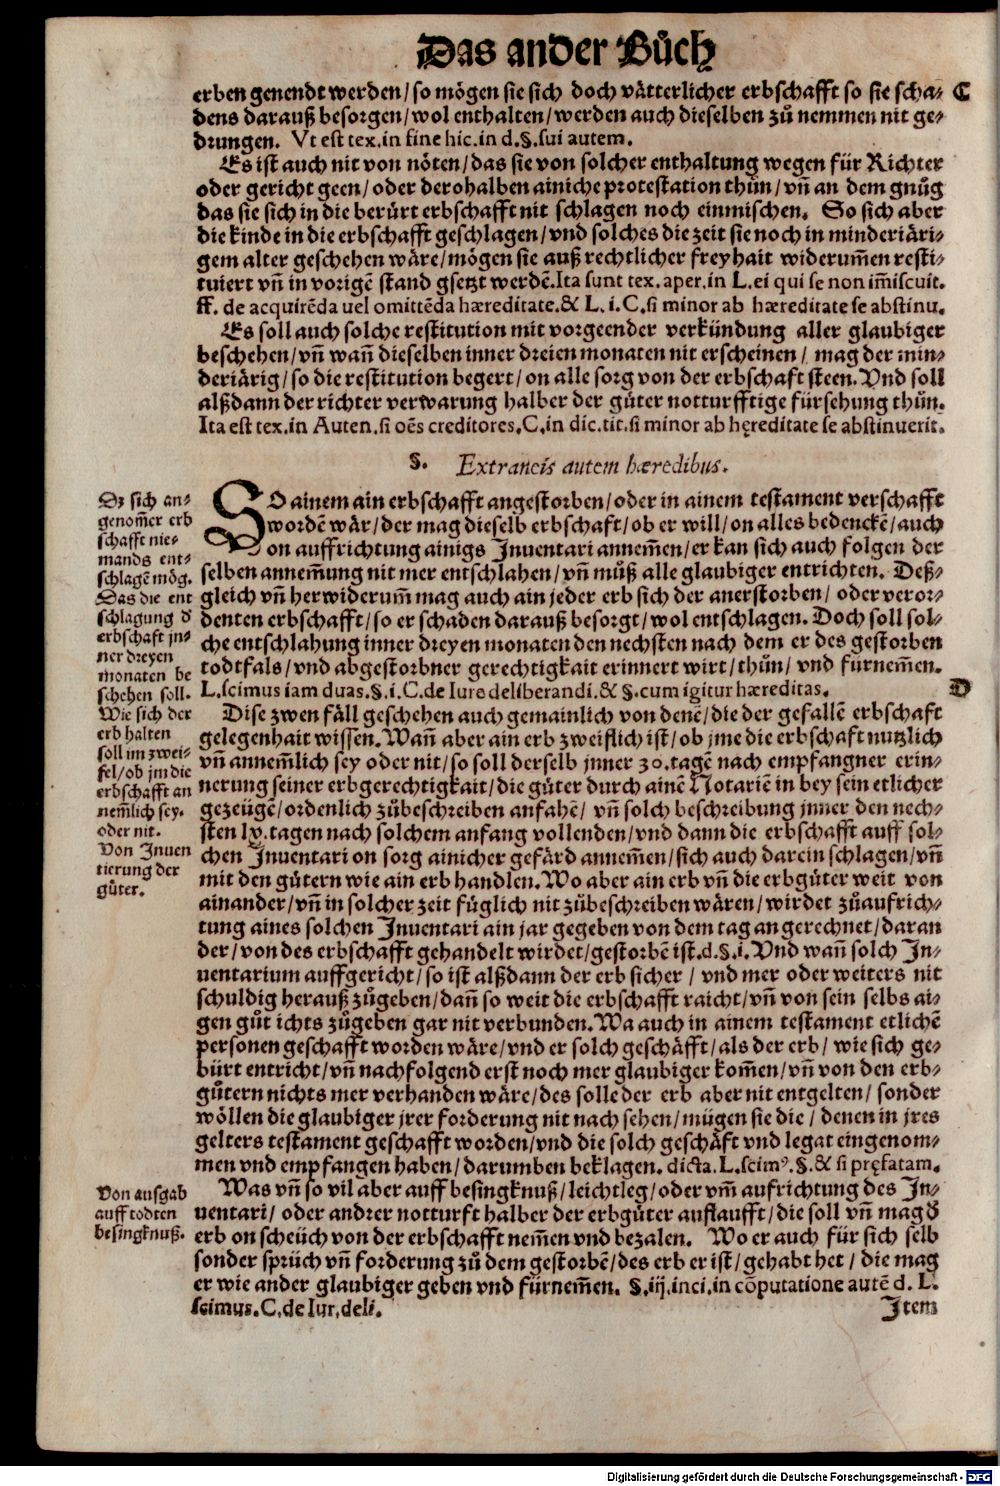 Das ander Bůch
erben genendt werden/ so mögen sie sich doch vätterlicher erbschafft so sie scha⸗ C
dens darauß besorgen/ wol enthalten/ werden auch dieselben zů nemmen nit ge⸗
drungen. Vt est tex. in fine hic. in d. §. sui autem.
Es ist auch nit von nöten/ das sie von solcher enthaltung wegen für Richter
oder gericht geen/ oder derohalben ainiche protestation thůn/ vñ an dem gnůg
das sie sich in die berürt erbschafft nit schlagen noch einmischen. So sich aber
die kinde in die erbschafft geschlagen/ vnd solches die zeit sie noch in minderiäri⸗
gem alter geschehen wäre/ mögen sie auß rechtlicher freyhait widerum̃en resti⸗
tuiert vñ in vorigẽ stand gsetzt werdẽ. Ita sunt tex. aper. in L. ei qui se non im̃iscuit.
ff. de acquirẽda uel omittẽda hæreditate. & L. i. C. si minor ab hæreditate se abstinu.
Es soll auch solche restitution mit vorgeender verkündung aller glaubiger
beschehen/ vñ wañ dieselben inner dreien monaten nit erscheinen/ mag der min⸗
deriärig/ so die restitution begert/ on alle sorg von der erbschaft steen. Vnd soll
alßdann der richter verwarung halber der gůter notturfftige fürsehung thůn.
Ita est tex. in Auten. si oẽs creditores. C. in dic. tit. si minor ab hęreditate se abstinuerit.
§. Extraneis autem hæredibus.
Dz sich an⸗
genom̃er erb
schafft nie⸗
mands ent⸗
schlagẽ mög.
Das die ent
schlagung d
erbschaft jn⸗
ner dreyen
monaten be
schehen soll.
Wie sich der
erb halten
soll im zwei⸗
fel/ ob jm die
erbschafft an
nem̃lich sey.
oder nit.
Von Inuen
tierung der
gůter.
SO ainem ain erbschafft angestorben/ oder in ainem testament verschafft
wordẽ wär/ der mag dieselb erbschaft/ ob er will/ on alles bedenckẽ/ auch
on auffrichtung ainigs Inuentari annem̃en/ er kan sich auch folgen der
selben annem̃ung nit mer entschlahen/ vñ můß alle glaubiger entrichten. Deß⸗
gleich vñ herwiderum̃ mag auch ain jeder erb sich der anerstorben/ oder veror⸗
denten erbschafft/ so er schaden darauß besorgt/ wol entschlagen. Doch soll sol⸗
che entschlahung inner dreyen monaten den nechsten nach dem er des gestorben
todtfals/ vnd abgestorbner gerechtigkait erinnert wirt/ thůn/ vnd fürnem̃en.
L. scimus iam duas. §. i. C. de Iure deliberandi. & §. cum igitur hæreditas. D
Dise zwen fäll geschehen auch gemainlich von denẽ/ die der gefallẽ erbschaft
gelegenhait wissen. Wañ aber ain erb zweiflich ist/ ob jme die erbschaft nutzlich
vñ annem̃lich sey oder nit/ so soll derselb jnner 30. tagẽ nach empfangner erin⸗
nerung seiner erbgerechtigkait/ die gůter durch ainẽ Notariẽ in bey sein etlicher
gezeügẽ/ ordenlich zůbeschreiben anfahẽ/ vñ solch beschreibung jnner den nech⸗
sten lx. tagen nach solchem anfang vollenden/ vnd dann die erbschafft auff sol⸗
chen Inuentari on sorg ainicher gefärd annem̃en/ sich auch darein schlagen/ vñ
mit den gůtern wie ain erb handlen. Wo aber ain erb vñ die erbgůter weit von
ainander/ vñ in solcher zeit füglich nit zůbeschreiben wären/ wirdet zůaufrich⸗
tung aines solchen Inuentari ain jar gegeben von dem tag an gerechnet/ daran
der/ von des erbschafft gehandelt wirdet/ gestorbẽ ist. d. §. i. Vnd wañ solch In⸗
uentarium auffgericht/ so ist alßdann der erb sicher/ vnd mer oder weiters nit
schuldig herauß zůgeben/ dañ so weit die erbschafft raicht/ vñ von sein selbs ai⸗
gen gůt ichts zůgeben gar nit verbunden. Wa auch in ainem testament etlichẽ
personen geschafft worden wäre/ vnd er solch geschäfft/ als der erb/ wie sich ge⸗
bürt entricht/ vñ nachfolgend erst noch mer glaubiger kom̃en/ vñ von den erb⸗
gůtern nichts mer verhanden wäre/ des solle der erb aber nit entgelten/ sonder
wöllen die glaubiger jrer forderung nit nach sehen/ mügen sie die/ denen in jres
gelters testament geschafft worden/ vnd die solch geschäft vnd legat eingenom⸗
men vnd empfangen haben/ darumben beklagen. dicta. L. scimꝰ. §. & si pręfatam.
Von ausgab
auff todten
besingknuß.
Was vñ so vil aber auff besingknuß/ leichtleg/ oder vm̃ aufrichtung des In⸗
uentari/ oder andrer notturft halber der erbgůter auflaufft/ die soll vñ mag d
erb on scheüch von der erbschafft nem̃en vnd bezalen. Wo er auch für sich selb
sonder sprüch vñ forderung zů dem gestorbẽ/ des erb er ist/ gehabt het/ die mag
er wie ander glaubiger geben vnd fürnem̃en. §. iij. inci. in cõputatione autẽ d. L.
scimus. C. de Iur. deli. Item
Digitalisierung gefördert durch die Deutsche Forschungsgemeinschaft - DFG